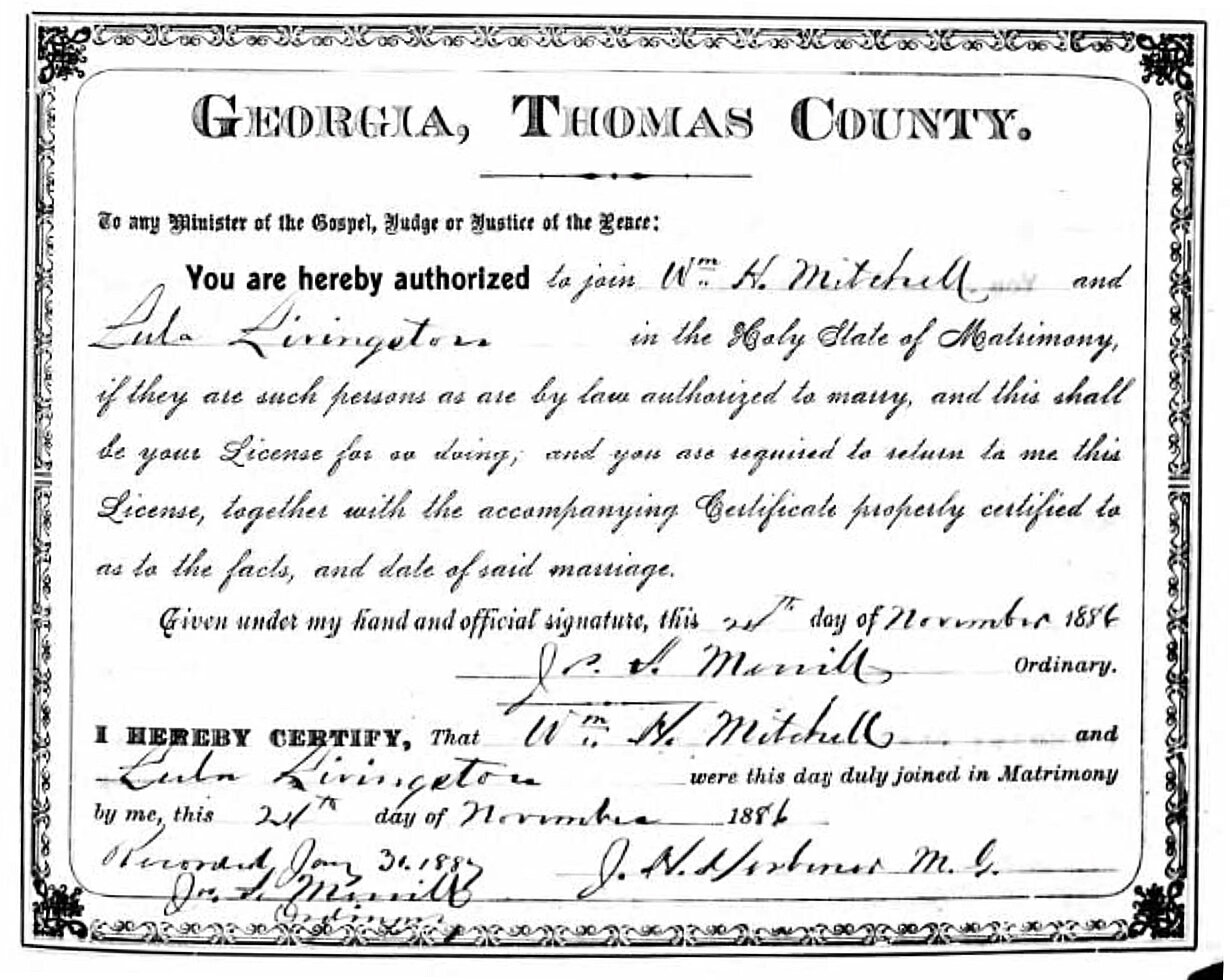 GEORGIA, THOMAS COUNTY.
To any Minister of the Gospel, Judge or Justice of the Peace:
You are hereby authorized to join Wm. H. Mitchell and
Lula Livingston in the Holy State of Matrimony,
if they are such persons as are by law authorized to marry, and this shall
be your License for so doing; and you are required to return to me this
License, together with the accompanying Certificate properly certified to
as to the facts, and date of said marriage.
Given under my hand and official signature, this day of November 1886
Merrill Ordinary.
I HEREBY CERTIFY, That Wm. H. Mitchell and
Lula Livingston were this day duly joined in Matrimony
by me, this day of November 1886
Recorded Jany 1887 J. H. M. G.
Merrill
Ordinary